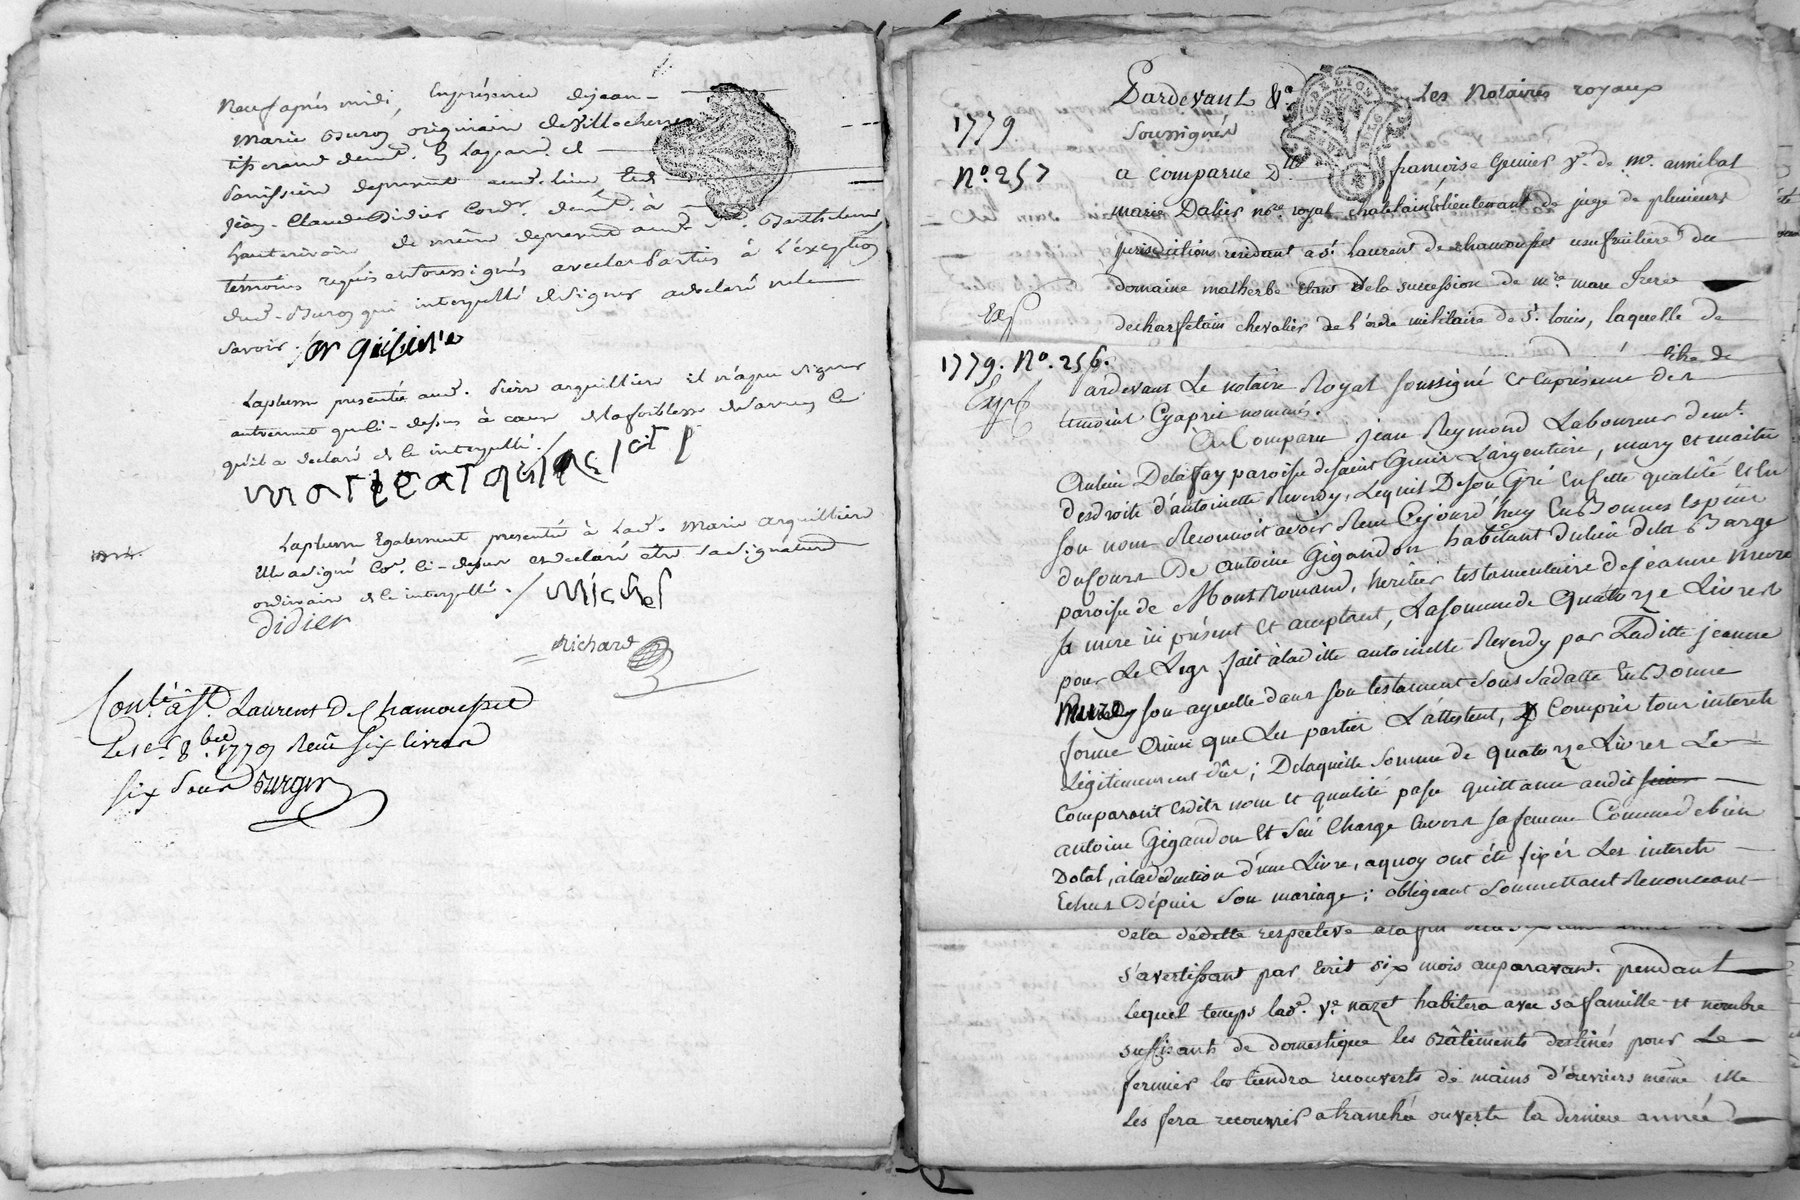 Neuf après midi, En présence de jean
Marie Buron originaire de Villechenere
tisserand demt. à
Paroissien de présent aud. lieu Et de
Jean Claude Didier Cordr. demt. à
hauterivoire de même de présent aud. St. Barthelemy
témoins requis et soussignés avec les Parties à L'exception
dud. Buron qui interpellé de signer a déclaré ne le
savoir.
La plume presentée aud. Pierre arquillière il n'a pu signer
autrement que ci-dessus à cause de la foiblesse de
qu'il a declaré de ce interpellé.
marie arquiliere
La plume Egalement presentée à Lade. Marie arquillière
Elle a signé Coe. ci-dessus et declaré être sa signature
ordinaire de ce interpellée. / Michel
Didier
Richard
Contlé à St. Laurent De Chamousset
Le 1er 8bre 1779 Reçu six livres
six sous Burgin
Pardevant Les Notaires royaux
1779. soussignés
No. 257 a comparue Dlle françoise Grenier Ve. de Me. annibal
marie Dalier nore. royal chatelain & lieutenant de juge de plusieurs
jurisdictions résidant a St. laurent de chamousset usufruitière du
domaine malherbe Etant de la succession de mre. marc frere
Exp
de chasselain chevalier de l'ordre militaire de St. louis, laquelle de
titre de
1779. No. 256. Pardevant Le notaire Royal soussigné et En présence des
Exp
temoins Cy après nommés.
A Comparu jean Reymond Laboureur demt.
Au lieu Delafay paroisse de saint Genis L'argentiere, mary et maitre
des droits d'antoinette Reverdy, Lequel De son Gré En cette qualité et En
son nom Reconnoit avoir Reçu Cejourd'huy En Bonnes Espèces
du Cours De Antoine Gigandon habitant Du lieu de la Barge
paroisse de Montromand, heritier testamentaire de jeanne Mure
sa mere ici présent et acceptant, La somme de Quatorze Livres
pour Le Legs fait à laditte antoinette Reverdy par Laditte jeanne
Mure son ayeulle dans son testament sous sa datte En Bonne
forme Ainsi que Les parties L'attestent, y Compris tous interets
Légitimement dûs; De laquelle somme de quatorze Livres Le
Comparant Esdits nom et qualité passe quittance audit
antoine Gigandon Et s'en Charge Envers sa femme Comme de bien
Dotal, à la déduction d'une Livre, a quoy ont été fixés Les interets
Echus Dépuis Son mariage; obligeant Soumettant Renonceant
de la dédette respective a la fin
s'avertissant par Ecrit six mois auparavant. pendant
lequel temps lade. Ve. nazet habitera avec sa famille et nombre
suffisants de domestique les Bâtiments destinés pour Le
fermier les tiendra recouverts de mains d'ouvriers même elle
les fera recouvrir a tranché ouverte la derniere année